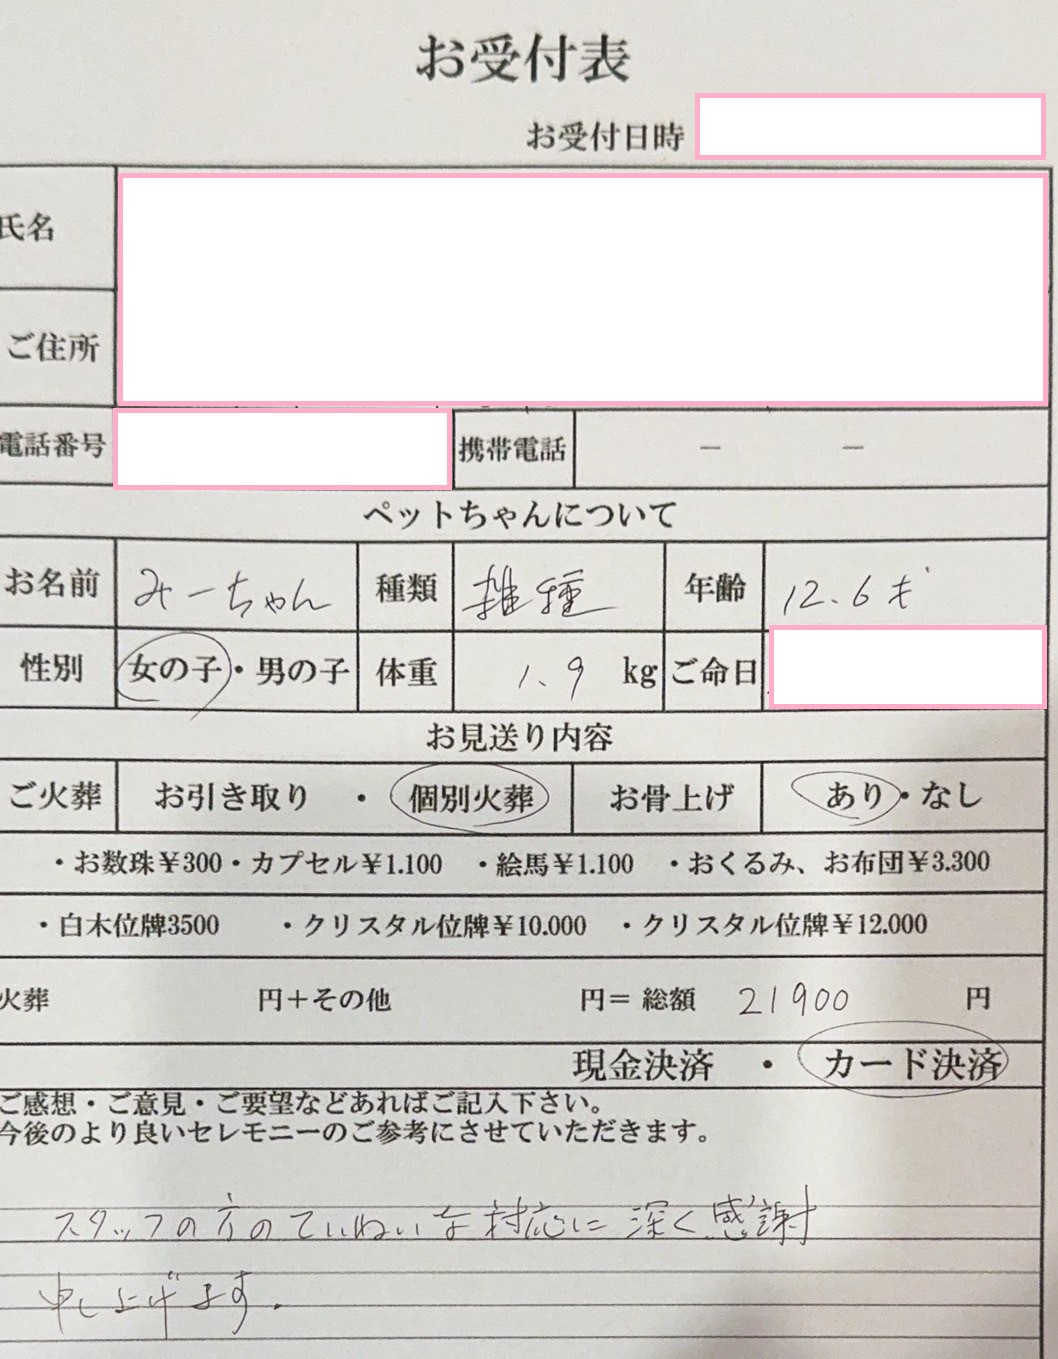 お受付表
お受付日時
氏名
ご住所
電話番号 携帯電話 － －
ペットちゃんについて
お名前 みーちゃん 種類 雑種 年齢 12.6才
性別 女の子・男の子 体重 1.9 kg ご命日
お見送り内容
ご火葬 お引き取り ・ 個別火葬 お骨上げ あり・なし
・お数珠¥300・カプセル¥1.100 ・絵馬¥1.100 ・おくるみ、お布団¥3.300
・白木位牌3500 ・クリスタル位牌¥10.000 ・クリスタル位牌¥12.000
火葬 円＋その他 円＝ 総額 21900 円
現金決済 ・ カード決済
ご感想・ご意見・ご要望などあればご記入下さい。
今後のより良いセレモニーのご参考にさせていただきます。
スタッフの方のていねいな対応に深く感謝
申し上げます.